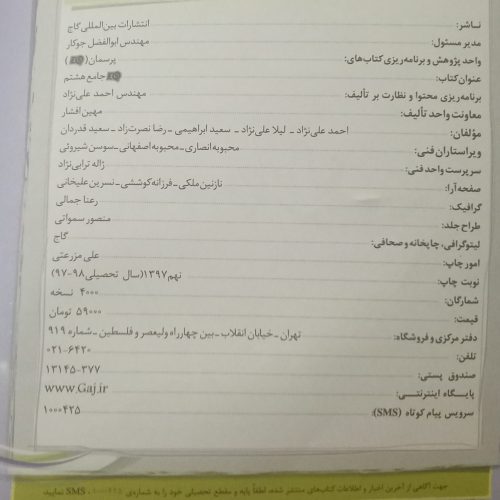 ناشر: انتشارات بین‌المللی گاج
مدیر مسئول: مهندس ابوالفضل جوکار
واحد پژوهش و برنامه‌ریزی کتاب‌های: پرسمان ( )
عنوان کتاب: جامع هشتم
برنامه‌ریزی محتوا و نظارت بر تألیف: مهندس احمد علی‌نژاد
معاونت واحد تألیف: مهین افشار
مؤلفان: احمد علی‌نژاد ـ لیلا علی‌نژاد ـ سعید ابراهیمی ـ رضا نصرت‌زاد ـ سعید قدردان
ویراستاران فنی: محبوبه انصاری ـ محبوبه اصفهانی ـ سوسن شیروئی
سرپرست واحد فنی: ژاله ترابی‌نژاد
صفحه‌آرا: نازنین ملکی ـ فرزانه کوششی ـ نسرین علیخانی
گرافیک: رعنا جمالی
طراح جلد: منصور سمواتی
لیتوگرافی، چاپخانه و صحافی: گاج
امور چاپ: علی مزرعتی
نوبت چاپ: نهم ۱۳۹۷ (سال تحصیلی ۹۸-۹۷)
شمارگان: ۴۰۰۰ نسخه
قیمت: ۵۹۰۰۰ تومان
دفتر مرکزی و فروشگاه: تهران ـ خیابان انقلاب ـ بین چهارراه ولیعصر و فلسطین ـ شماره ۹۱۹
تلفن: ۰۲۱-۶۴۲۰
صندوق پستی: ۱۳۱۴۵-۳۷۷
پایگاه اینترنتی: www.Gaj.ir
سرویس پیام کوتاه (SMS): ۱۰۰۰۴۲۵
جهت آگاهی از آخرین اخبار و اطلاعات کتاب‌های منتشر شده، لطفاً پایه و مقطع تحصیلی خود را به شماره‌ی SMS نمایید